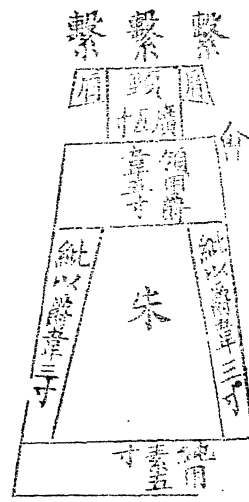 繫 繫 繫
肩 頸 肩
廣
五寸
會
領用爵
韋五寸
紕以爵韋三寸
朱
紕以爵韋三寸
純用
素五
寸